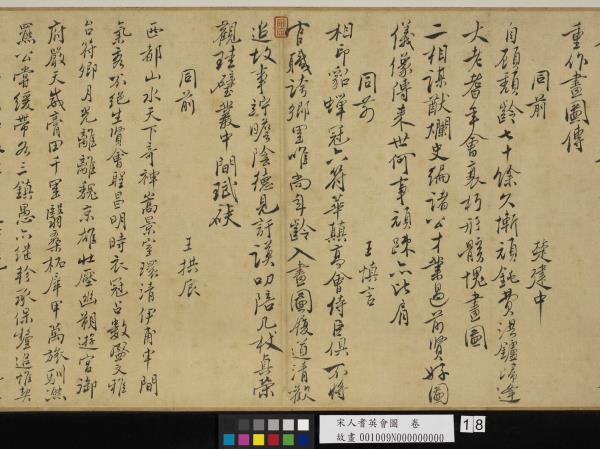 重作畫圖傳
同前 張建中
自顧頹齡七十餘久慚頑鈍費洪鑪歸逢
大老耆年會裏朽形骸愧畫圖
二相謀猷爛史編諸公才業過前賢好圖
儀像傳來世何事頑疎亦比肩
同前 王慎言
相印貂蟬冠六符華顛高會侍臣俱不將
官職誇鄉里唯尚年齡入畫圖履道清歡
追故事
觀珪璧叢中間珷砆
同前 王拱辰
西都山水天下奇神嵩景室環清伊甫申間
氣亥不絕生賢會聖昌明時衣冠占數盛文雅
台符鄉月光離離魏京雄壯壓幽朔遊宮御
府嚴天威膏田千里翳桑柘犀甲萬旅馴熊
羆公嘗緩帶為三鎮愚亦繼幹承保釐追惟契
宋人耆英會圖 卷
故畫 001009N000000000
18